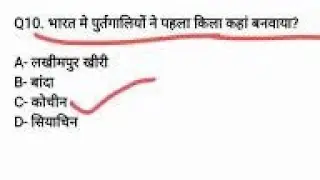 Q10. भारत मे पुर्तगालियों ने पहला किला कहां बनवाया?
A- लखीमपुर खीरी
B- बांदा
C- कोचीन
D- सियाचिन